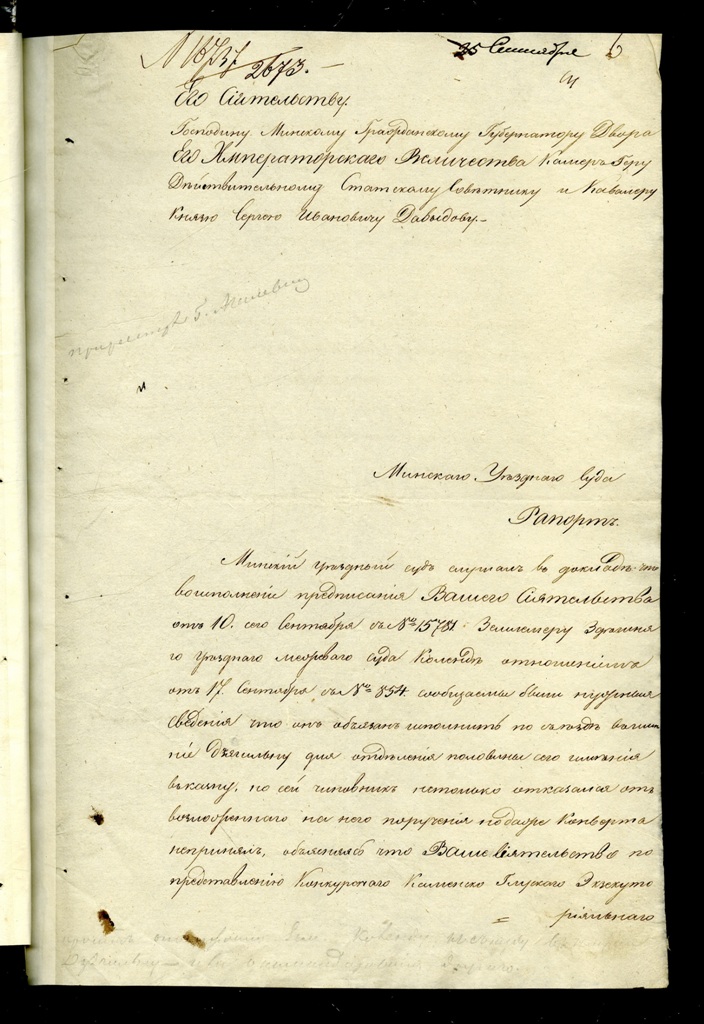 N 16737
2673.
25 Сентября
6
Его Сіятельству.
Господину Минскому Гражданскому Губернатору Двора
Его Императорскаго Величества Камеръ Геру
Дѣйствительному Статскому Совѣтнику и Кавалеру
Князю Сергею Ивановичу Давыдову.
Минскаго Уѣзднаго Суда
Рапортъ.
Минскій уѣздный судъ слушалъ въ докладѣ что
воисполненіе предписанія Вашего Сіятельства
отъ 10. сего Сентября съ № 15781. Землемеру
го уѣзднаго межеваго суда отношеніемъ
отъ 17. Сентября съ № 854. сообщаемы были нужныя
сведенія что онъ обязанъ исполнить по съездѣ въ имѣ
ніе для отдѣленія половины сего имѣнія
въ казну, но сей чиновникъ нетолько отказался отъ
возложеннаго на него порученія но даже Конверта
непринялъ, объясняясь что Ваше Сіятельство по
представленію Конкурснаго Каменско Глуского Экзекуто
ріяльнаго